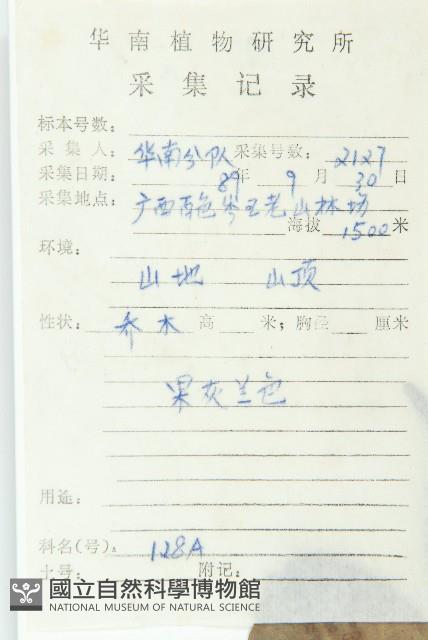 华南植物研究所
采集记录
标本号数：
采集人：华南分队 采集号数：2127
采集日期：89年9月30日
采集地点：广西百色岑王老山林场
海拔1500米
环境：
山地 山顶
性状：乔木 高 米；胸径 厘米
果灰兰色
用途：
科名(号)：128A
土号： 附记：
國立自然科學博物館
NATIONAL MUSEUM OF NATURAL SCIENCE